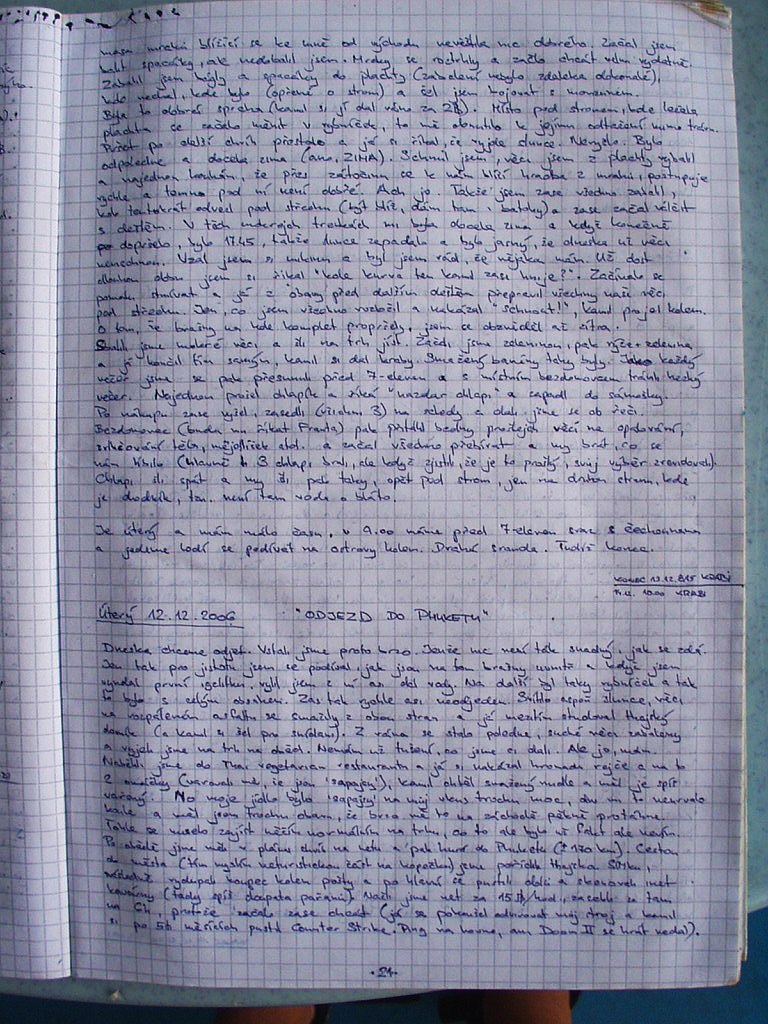 masa mraků blížící se ke mně od východu nevěštila nic dobrého. Začal jsem
balit spacáky, ale nedobalil jsem. Mraky se roztrhly a začlo chcát velmi vydatně.
Zabalil jsem bágly a spacáky do plachty (zabalení nebylo zdaleka dokonalé),
kolo nechal, kde bylo (opřené o strom) a šel jsem bojovat s monzunem.
Byla to dobrá sprcha (kamil si ji dal ráno za 2฿). Místo pod stromem, kde ležela
plachta se začalo měnit v rybníček, to mě donutilo k jejímu odtažení mimo trávu.
Pršet po delší chvíli přestalo a já si říkal, že vyjde slunce. Nevyšlo. Bylo
odpoledne a docela zima (ano, ZIMA). Schnul jsem, věci jsem z plachty vybalil
a najednou koukám, že přes zátočinu se k nám blíží hradba z mraků, postupuje
rychle a temno pod ní není dobré. Ach jo. Takže jsem zase všechno zabalil,
kolo tentokrát odvedl pod střechu (být blíž, dám tam i batohy) a zase začal válčit
s deštěm. V těch mokrejch trenkách mi byla docela zima a když konečně
dopršelo, bylo 17.45, takže slunce zapadalo a bylo jasný, že dneska už věci
neuschnou. Vzal jsem si mikinu a byl jsem rád, že nějakou mám. Už dost
dlouhou dobu jsem si říkal "kde kurva ten kamil zase hnije?". Začínalo se
pomalu stmívat a já z obavy před dalším deštěm přepravil všechny naše věci
pod střechu. Jen, co jsem všechno rozložil a nakázal "schnout!", kamil projel kolem.
O tom, že brašny na kole komplet propršely, jsem se dozvěděl až zítra.
Sbalili jsme mokré věci a šli na trh jíst. Začali jsme zeleninou, pak rýže+zelenina
a já končil tím samým, kamil si dal kraby. Smažený banány taky byly. Jako každý
večer jsme se pak přesunuli před 7-eleven a s místním bezdomovcem trávili hezký
večer. Najednou prošel chlapík a říkal "nazdar chlapi" a zapadl do sámošky.
Po nákupu zase vyšel, zasedli (všichni 3) na schody a dali jsme se do řeči.
Bezdomovec (budu mu říkat Franta) pak přitáhl bedny prošlejch věcí na opalování,
zvlhčování těla, mýdlíček atd. a začal všechno přebírat a my brát, co se
nám líbilo (hlavně ti 3 chlapi brali, ale když zjistili, že je to prošlý, svůj výběr zrevidovali).
Chlapi šli spát a my šli pak taky, opět pod strom, jen na druhou stranu, kde
je chodník, tzn. není tam voda a bláto.
Je úterý a mám málo času, v 9.00 máme před 7-eleven sraz s čechounama
a jedeme lodí se podívat na ostrovy kolem. Drahá sranda. Tudíž konec.
KONEC 12.12. 8:15 KRABI
14.12. 10:00 KRABI
Úterý 12.12.2006 "ODJEZD DO PHUKETU"
Dneska chceme odjet. Vstali jsme proto brzo. Jenže nic není tak snadný, jak se zdá.
Jen tak pro jistotu jsem se podíval, jak jsou na tom brašny uvnitř a když jsem
vyndal první igelitku, vylil jsem z ní asi deci vody. Na další byl taky rybníček a tak
to bylo s celým obsahem. Zas tak rychle asi neodjedem. Svítilo aspoň slunce, věci
na rozpáleném asfaltu se smažily z obou stran a já mezitím studoval thajský
domy (a kamil si šel pro snídani). Z rána se stalo poledne, suché věci zabaleny
a vyjeli jsme na trh na oběd. Nemám už tušení, co jsme si dali. Ale jo, mám.
Naběhli jsme do Thai vegetarian restaurantu a já si ukázal hromadu rejže a na to
2 omáčky (varovali mě, že jsou "sapajsy"), kamil chtěl smažený nudle a měl je spíš
vařený. No moje jídlo bylo "sapajsy" na můj vkus trochu moc, div mi to neurvalo
 a měl jsem trochu obavu, že brzo mě to na záchodě pěkně protáhne.
Tohle se muselo zajíst něčím normálním na trhu, co to ale bylo už fakt ale nevím.
Po obědě jsme měli v plánu chvíli na netu a pak hurá do Phuketu (± 170 km). Cestou
do města (tím myslím neturistickou část na kopečku) jsme pořídili thajskou SIMku,
následně vyšlapali kopec kolem pošty a po hlavní se pustili dolů a sledovali inet
kavárny (tady spíš doupata pařanů). Našli jsme net za 15฿/hod, zasekli se tam
na 6h, protože začalo zase chcát (já se pokoušel odvirovat můj stroj a kamil
si po 5ti měsících pustil Counter Strike. Ping na hovno, ani Doom II se hrát nedal).
·21·